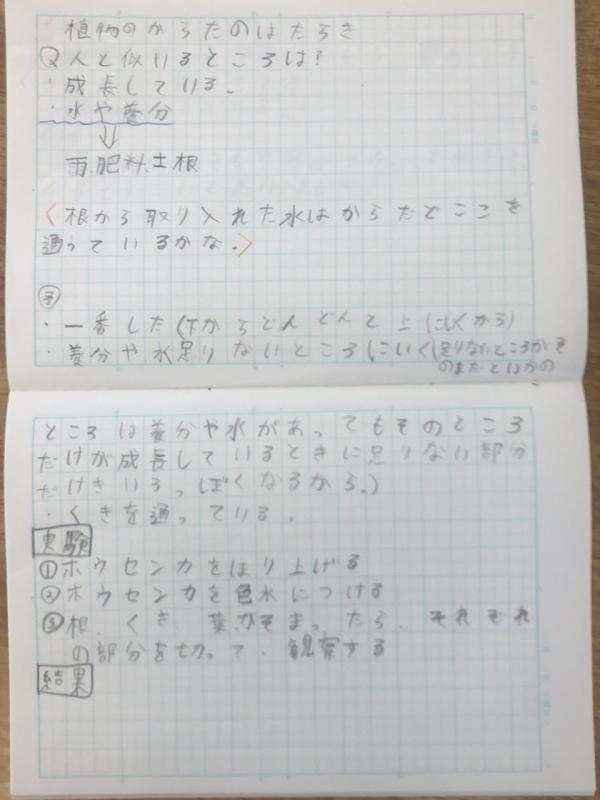 植物のからだのはたらき
Q人と似ているところは?
・成長している。
・水や養分
⇓
雨、肥料、土、根
<根から取り入れた水はからだどこを
通っているかな。>
予
・一番した(下からどんどんと上にいくから)
・養分や水足りないところにいく(足りないところがそ
のままだとほかの
ところは養分や水があってもそのところ
だけが成長しているときに足りない部分
だけきいろっぽくなるから。)
・くきを通っている。
実験
①ホウセンカをほり上げる
②ホウセンカを色水につける
③根、くき、葉がそまったら、それぞれ
の部分を切って、観察する
結果